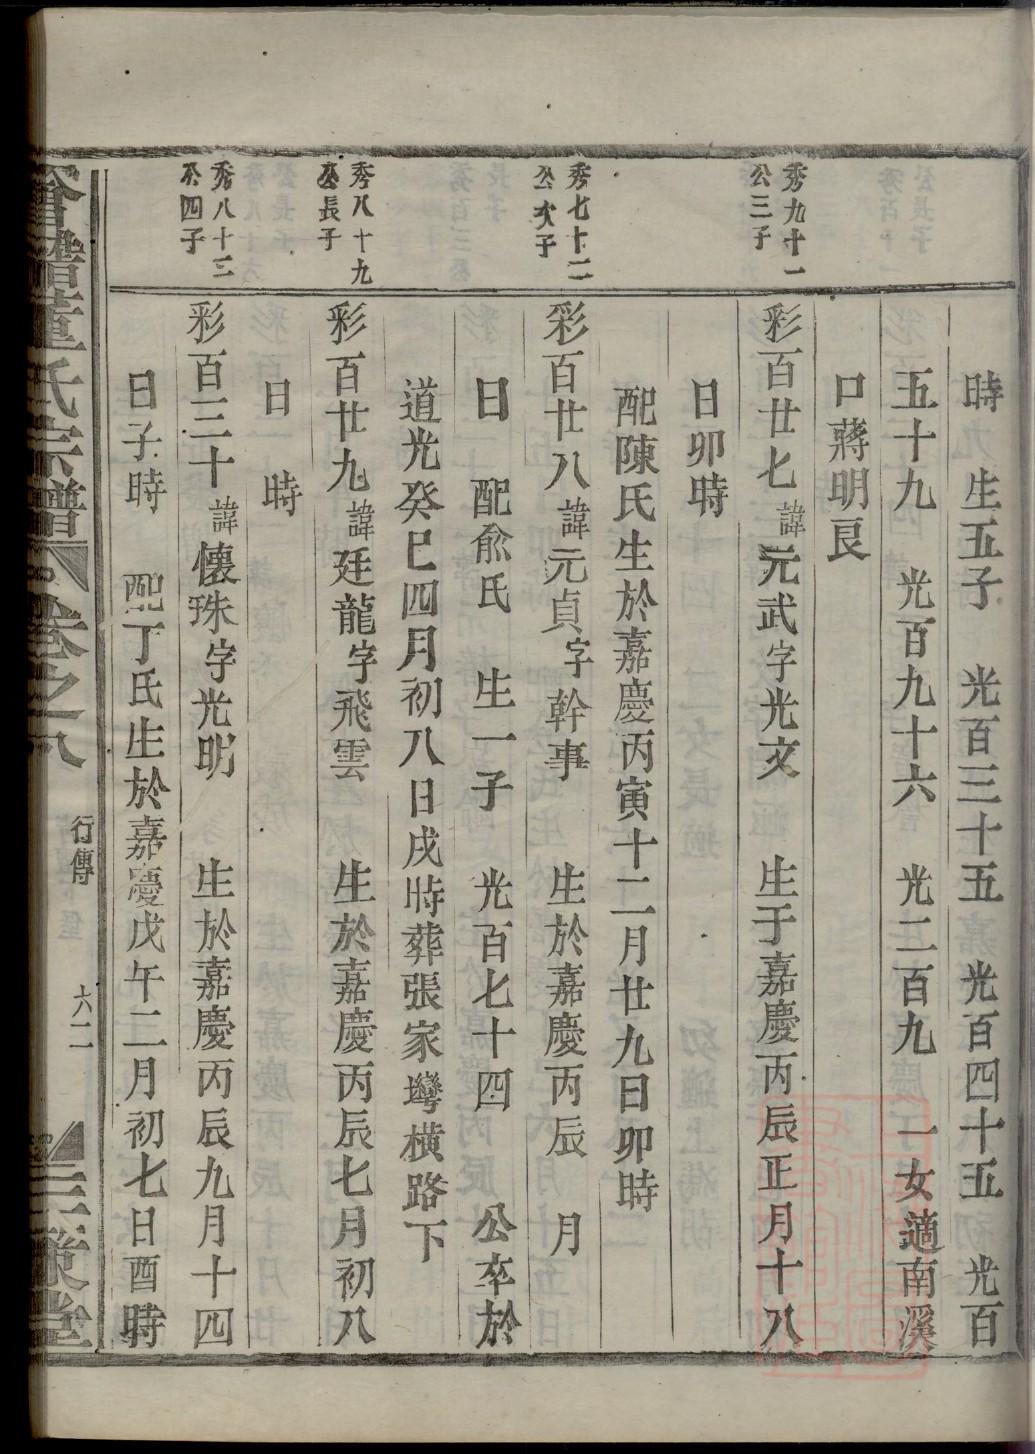 時　生五子　光百三十五　光百四十五　光百
五十九　光百九十六　光二百九　一女適南溪
口蔣明良
秀九十一
公三子
彩百廿七諱元武字光文　生于嘉慶丙辰正月十八
日卯時
配陳氏生於嘉慶丙寅十二月廿九日卯時
秀七十二
公次子
彩百廿八諱元貞字幹事　生於嘉慶丙辰　月
日　配兪氏　生一子　光百七十四　公卒於
道光癸巳四月初八日戌時葬張家灣橫路下
秀八十九
公長子
彩百廿九諱廷龍字飛雲　生於嘉慶丙辰七月初八
日　時
秀八十三
公四子
彩百三十諱懷珠字光明　生於嘉慶丙辰九月十四
日子時　配丁氏生於嘉慶戊午二月初七日酉時
會稽董氏宗譜　卷之八　行傳　六二　三策堂